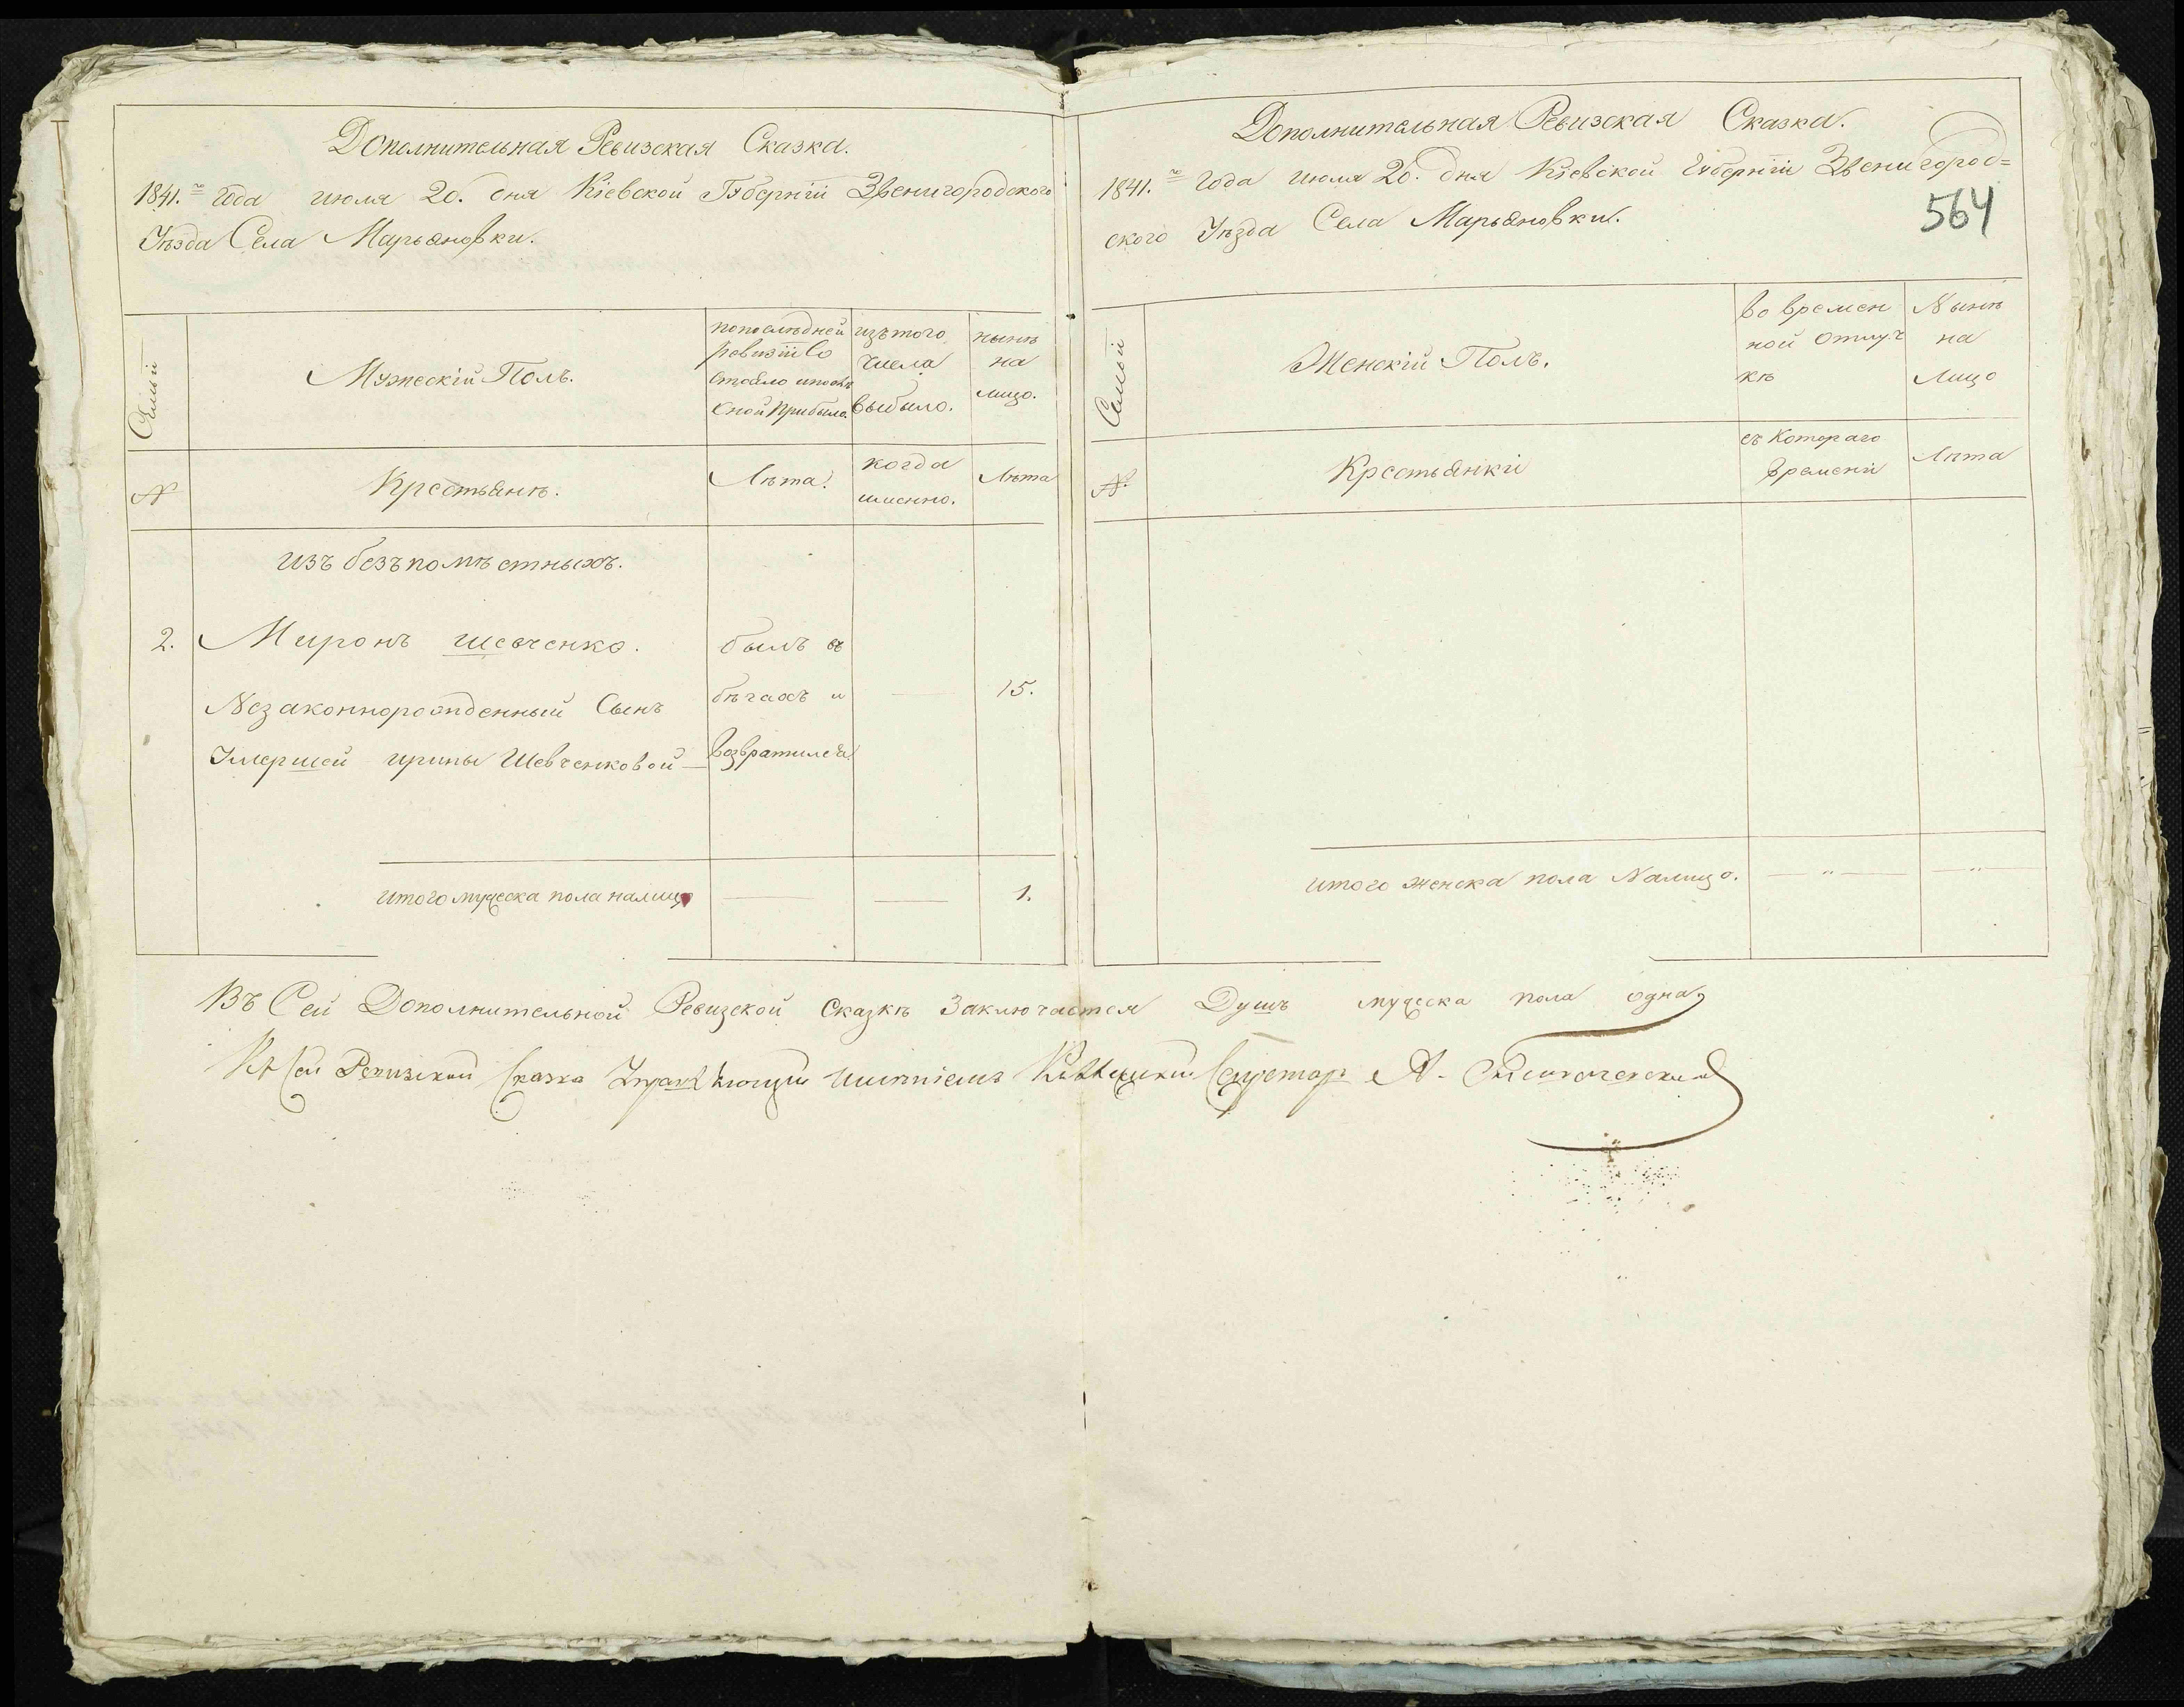 Дополнительная Ревизская Сказка.
1841.го Года июля 20. дня Кіевской Губерніи Звенигородского
Уѣзда Села Марьяновки.
Семьи
Мужескій Полъ.
попослѣдней
ревизіи Со
стояло ипослѣ
оной прибыло.
изътого
числа
выбыло.
нынѣ
на
лицо.
№
Крестьянѣ.
Лѣта.
когда
именно.
Лѣта
изъ безъпомѣстныхъ.
2. Миронъ шевченко.
Незаконнорожденный Сынъ
Умершей ирины Шевченковой
былъ въ
бѣгахъ и
возвратился
15.
итого мужеска пола налицо
1.
Дополнительная Ревизская Сказка.
1841.го Года июля 20. дня Кіевской Губерніи Звенигород=
ского Уѣзда Села Марьяновки.
564
Семьи
Женскій Полъ.
во времен
ной отлуч
кѣ
Нынѣ
на
Лицо
№.
Крестьянки
съ Котораго
Времени
Лѣта
итого женска пола Налицо.
Въ Сей Дополнительной Ревизской Сказкѣ Заключается Душъ мужеска пола одна
Къ Сей Ревизской Сказка Управляющій имѣніемъ А.